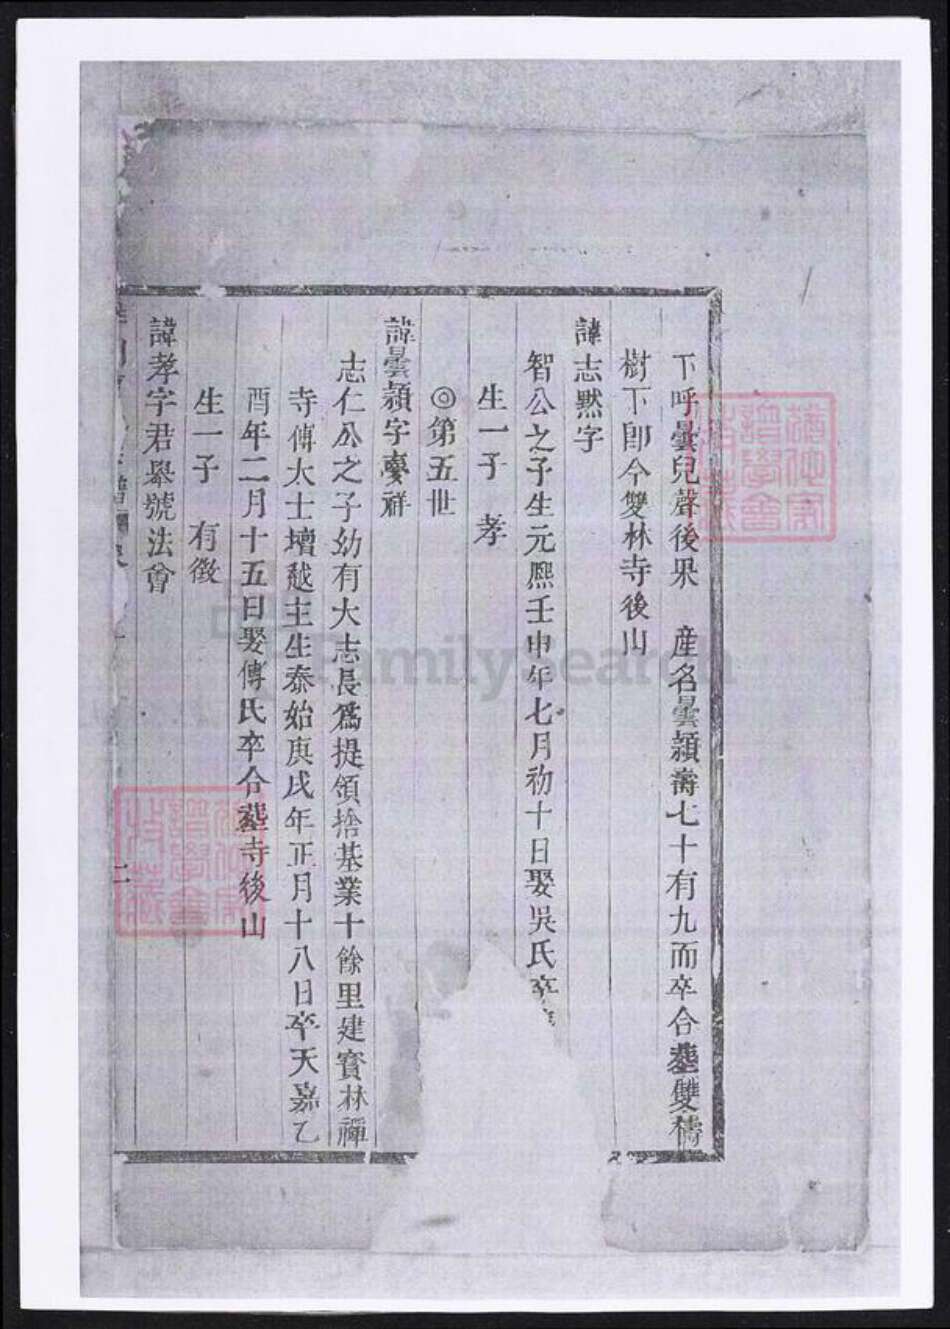 下呼曇兒聲後果　産名曇頴壽七十有九而卒合塟雙檮
樹下卽今雙林寺後山
諱志黙字
智公之子生元熈壬申年七月初十日娶吳氏卒
生一子　孝
◎第五世
諱曇頴字夣祥
志仁公之子幼有大志長爲提領捨基業十餘里建寳林禪
寺傳大士壇越主生泰始庚戌年正月十八日卒天嘉乙
酉年二月十五日娶傅氏卒合塟寺後山
生一子　有徵
諱孝字君擧號法曾
二
FamilySearch